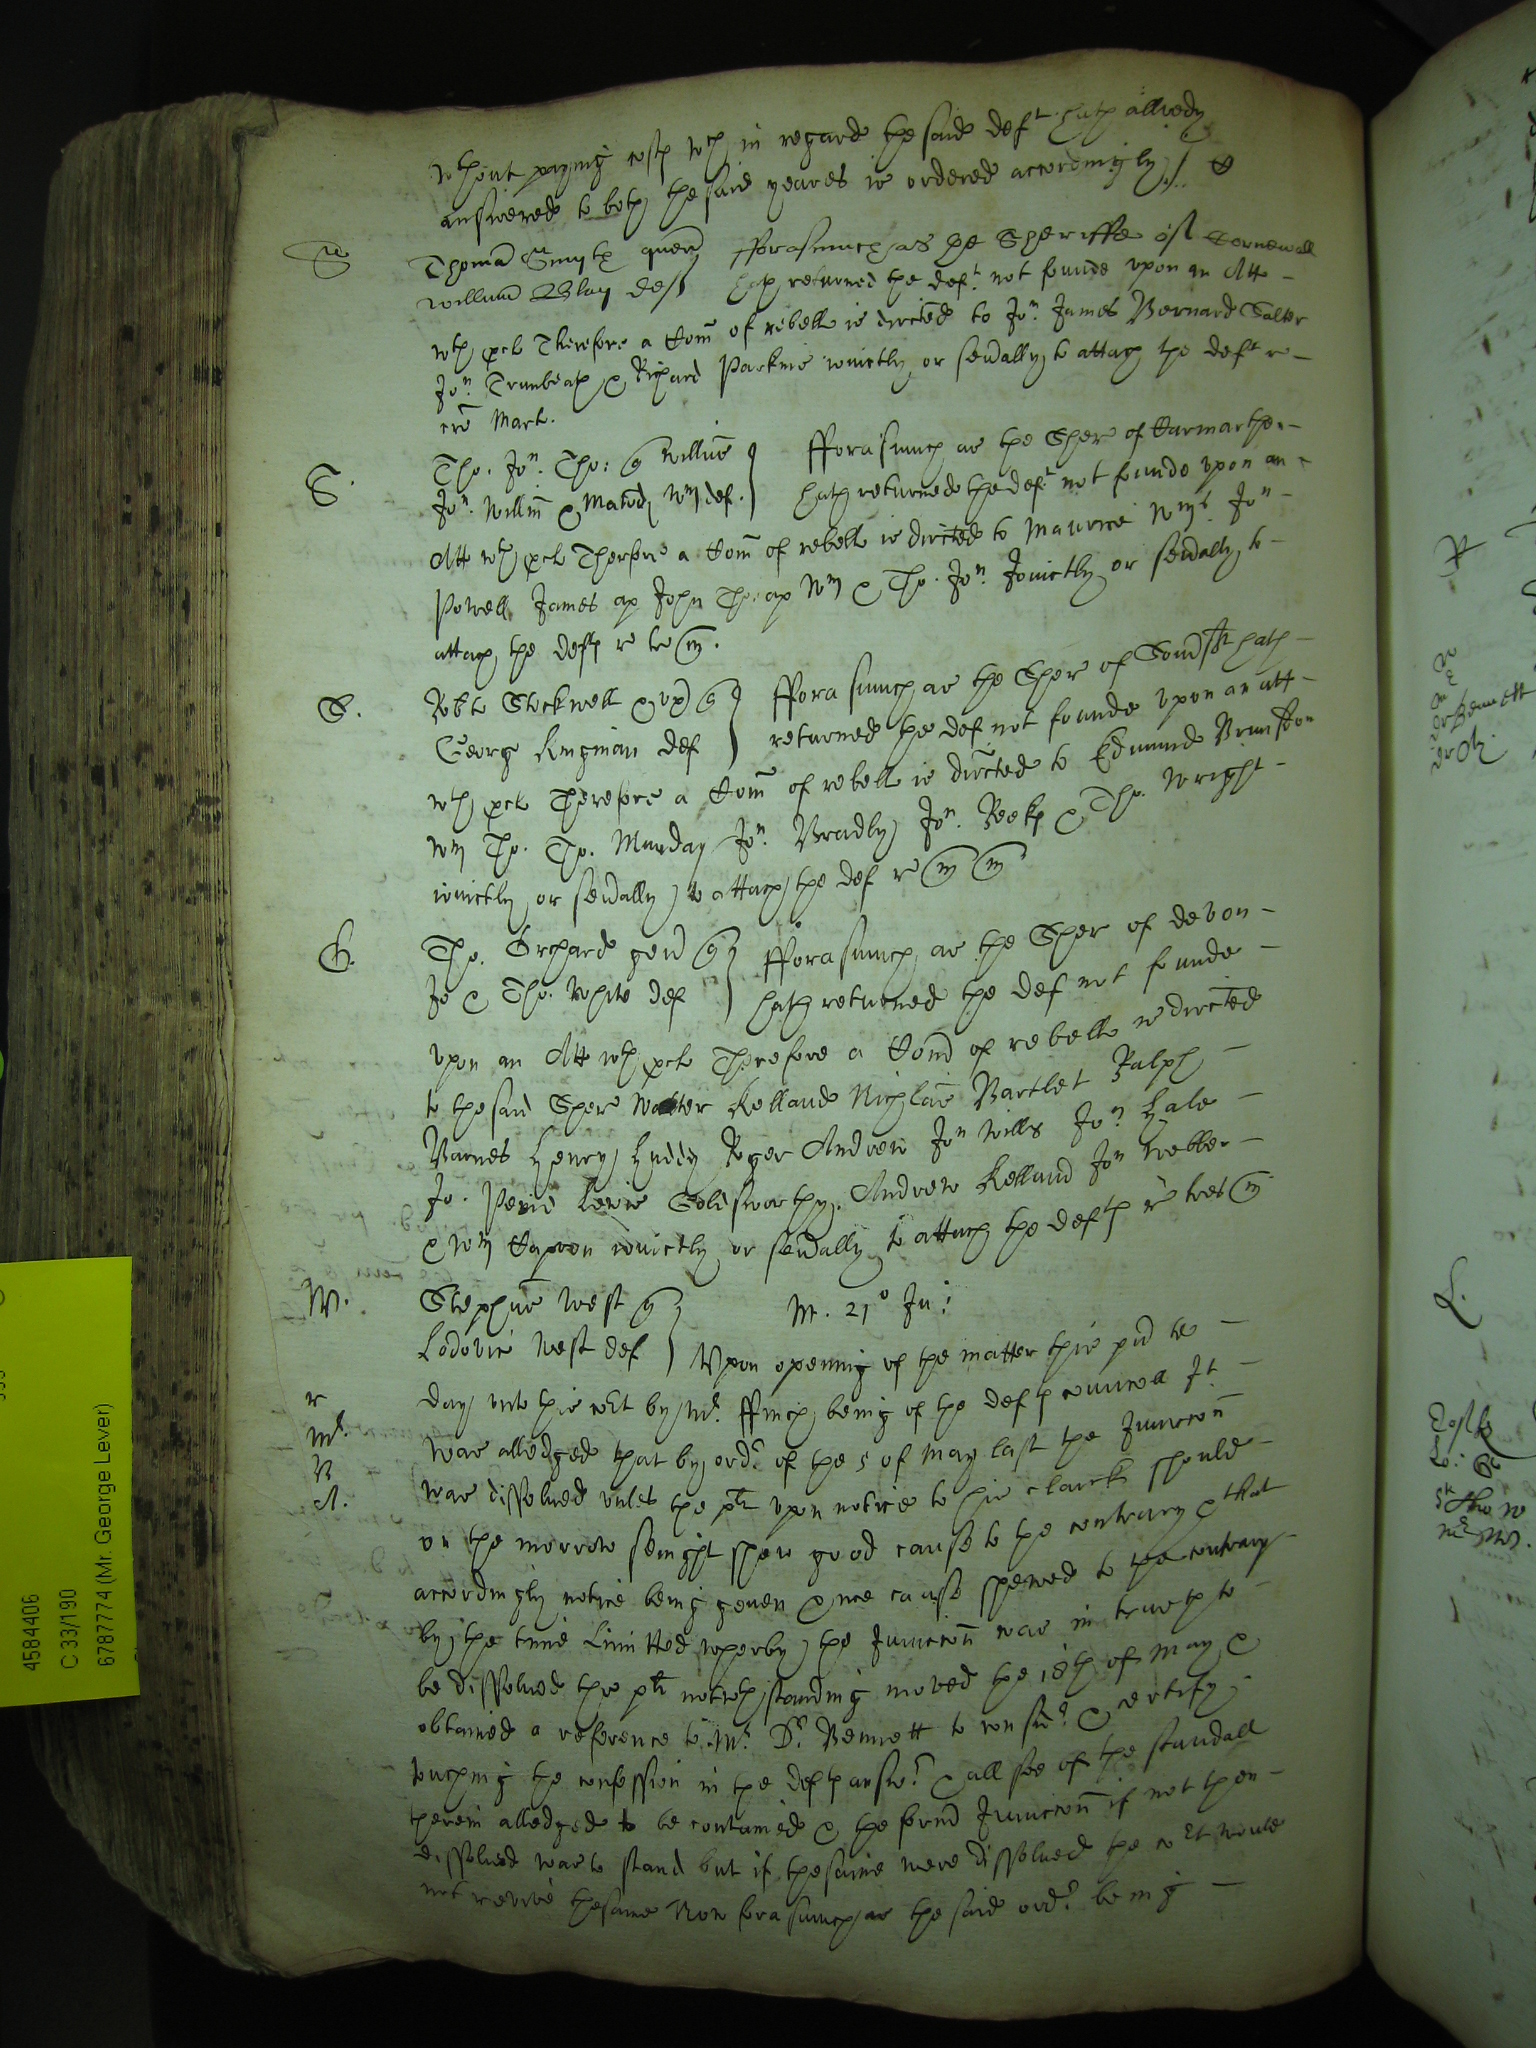 wthout paying costs wch in regard the said deft hath allredy
answered to both the said yeares is ordered accordingly
Thoma Smyth quer fforasmuch as the Sheriffe of Cornewall
Willium Blay def hath returned the deft not founde vpon an Att
wth procl Therefore a Com of rebell is directed to Jon James Bernard Salter
Jon Trunbeath & Richard Parkins ioinctly or seually to attach the deft r
cro Mart.
S. Tho. Jon. Tho: q Willm fforasmuch as the Sher of Carmarthen
Jon. Willm & Matild Wm def. hath returned the deft not founde vpon an
Att wth procl Therfore a Com of rebell is directed to Maurice Wms Jon
Powell James ap John Tho: ap Wm & Tho. Jon. Joinctly or seually to
attach the defts
S. Robte Stockwell & vx q fforasmuch as the Sher of Somst hath
George Kingman def returned the def not founde vpon an att
wth procl Therefore a Com of rebell is directed to Edmunde Brimston
Wm Tho. Tho. Munday Jon. Bradly Jon. Beek & Tho. Wright
ioinctly or seually to attach the def
O. Tho. Orchard gen q fforasmuch as the Sher of Devon
Jo & Tho. White def hath returned the def not founde
vpon an Att wth procl Therefore a Com of rebell is directed
to the said Shere Walter Kellande Nicholas Bartlet Ralph
Barnes Henry Huddy Roger Andrew Jon Wills Jon Hale
Jo. Lewis Goldsworthy Andrew Kelland Jon Webber
& Wm Capron ioinctly or seually to attach the defts
W. Stephus West q M. 21o Ju:
Lodovic West def Vpon opening of the matter this pnte
r day vnto this cort by Mr. ffinch being of the defts councell It
Mr. was alledged that by ordr of the 5 of May last the Juncon
B was dissolued vnles the plt vpon notice to his clark should
A. on the morrow senight shew good cause to the contrary & that
accordingly notice being geuen & noe cause shewed to the contrary
by the time Limitted wherby the Juncon was in trueth to
be dissolued the plt notwthstanding moved the 18th of May &
obtained a reference to Mr. Dr. Bennett to considr & certify
touching the confession in the defts answr & allsoe of the scandall
therein alledged to be contained & the form Juncon if not then
dissolued was to stand but if the same were dissolued the cort would
not reviue the same Now forasmuch as the said ordr being
4584406
C 33/190
6787774 (Mr. George Lever)